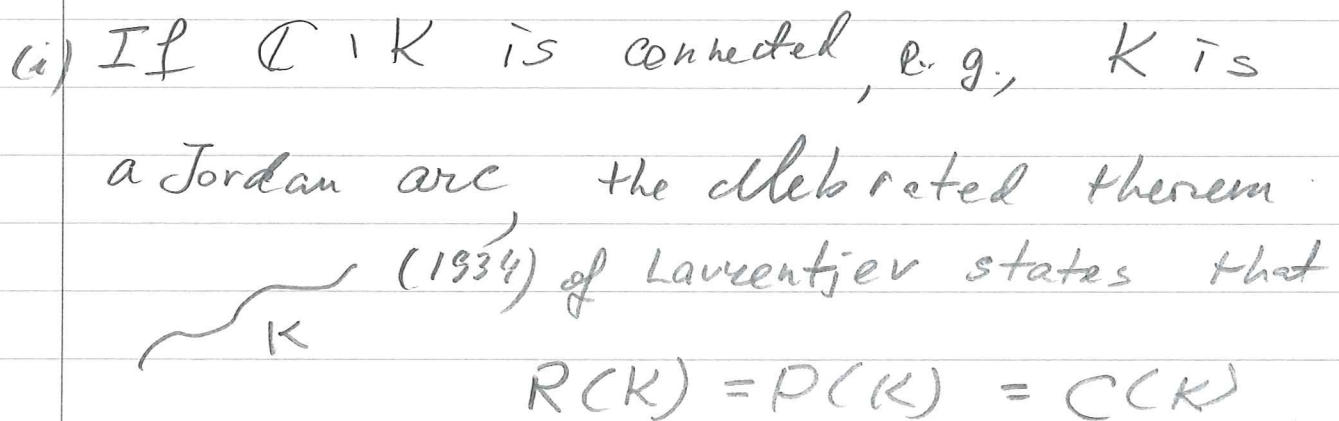 (i) If ℂ \ K is connected, e.g., K is
a Jordan arc, the celebrated theorem
(1934) of Lavrentjev states that
K
R(K) = P(K) = C(K)